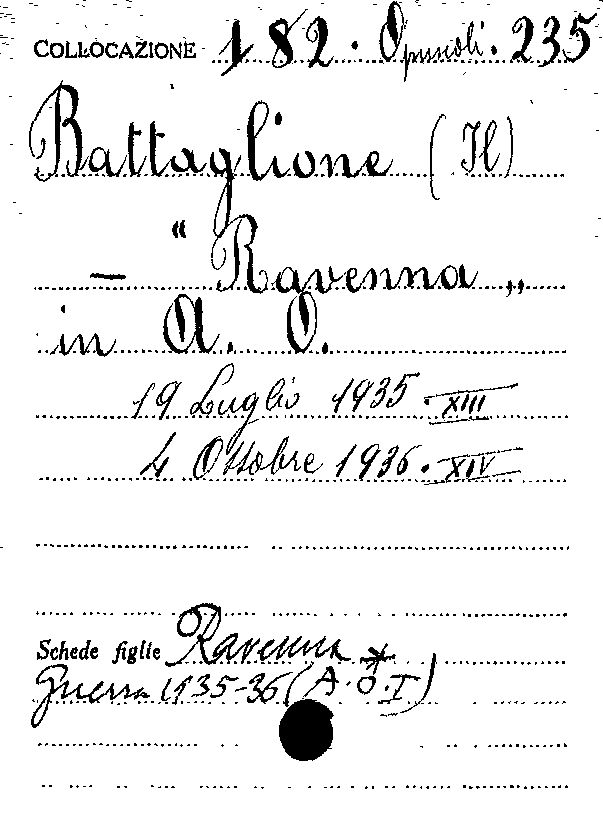 COLLOCAZIONE 182. Opuscoli. 235
Battaglione (Il)
— “ Ravenna „
in A. O.
19 Luglio 1935. XIII
4 Ottobre 1936. XIV
Schede figlie Ravenna *
Guerra 1935-36 (A.O.I)